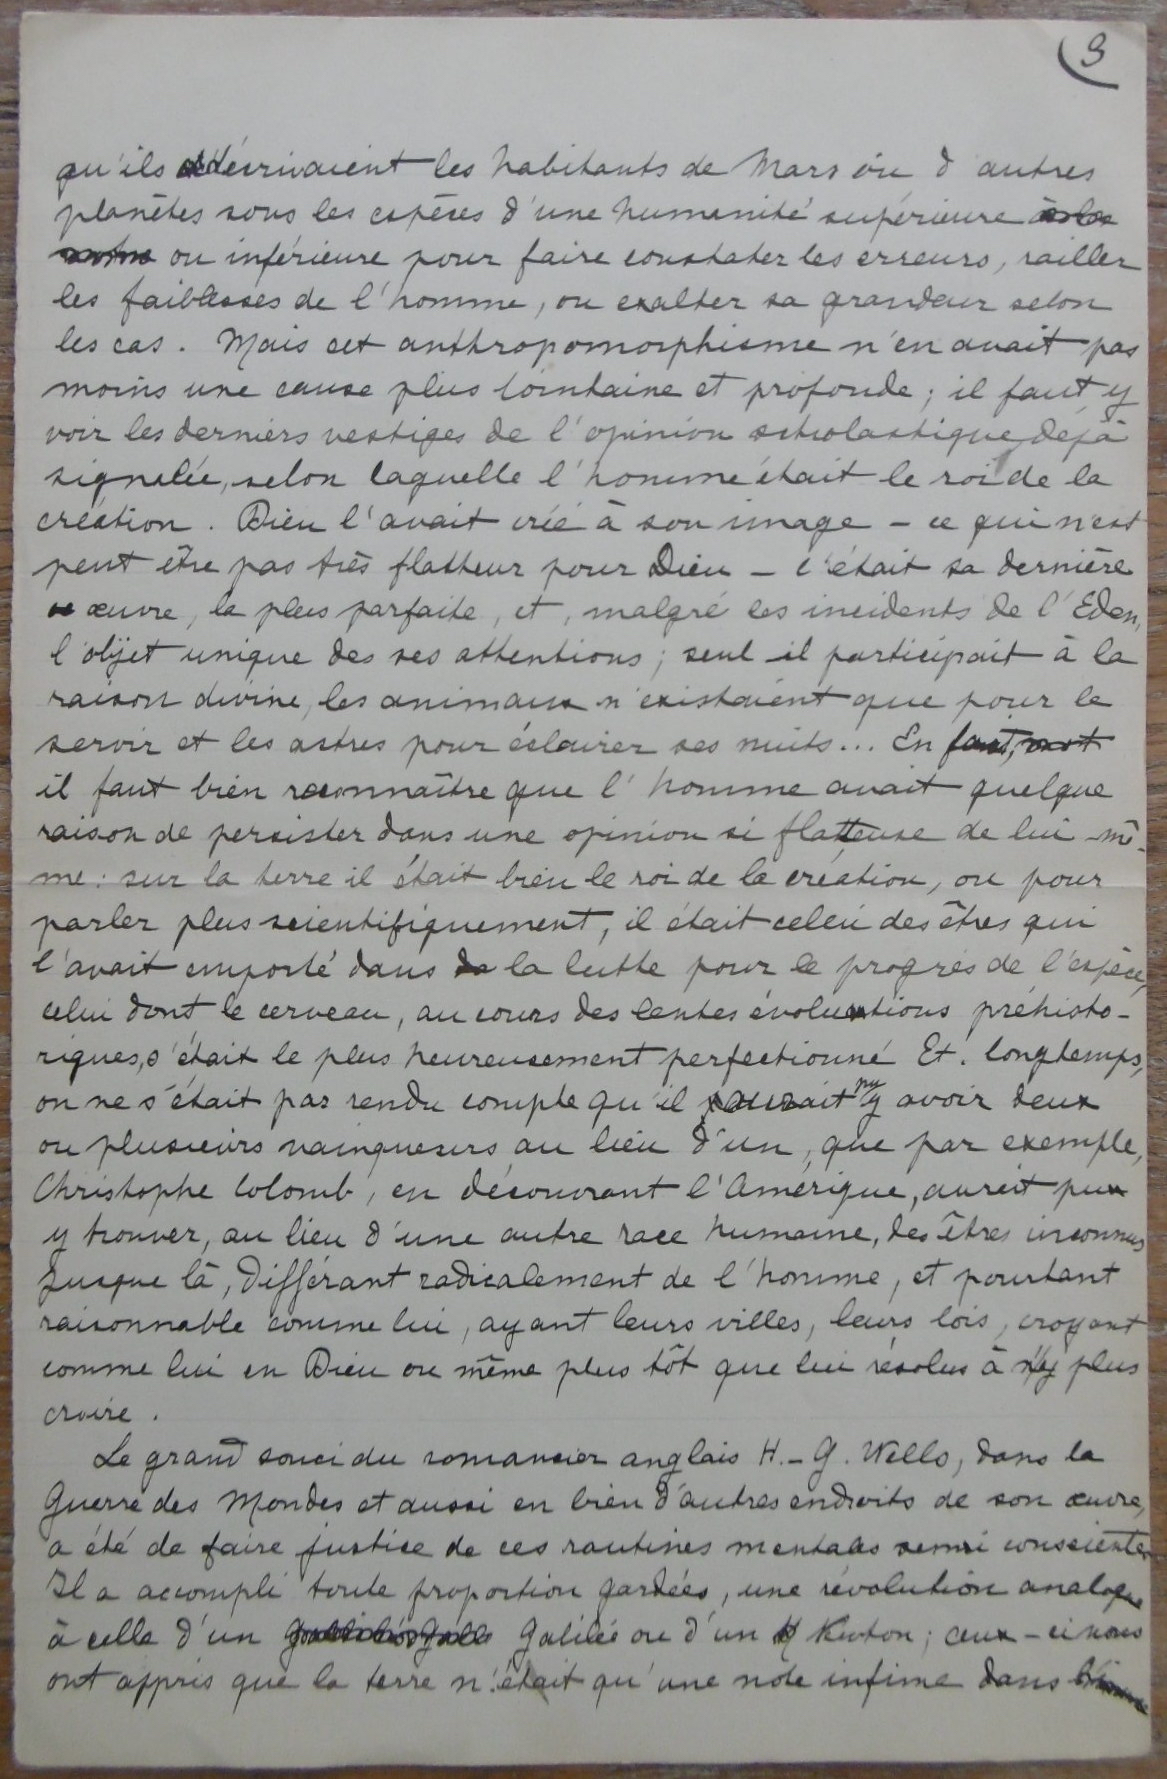 9
qu'ils décrivaient les habitants de Mars ou d'autres
planètes sous les espèces d'une humanité supérieure à la
notre ou inférieure pour faire constater les erreurs, railler
les faiblesses de l'homme, ou exalter sa grandeur selon
les cas. Mais cet anthropomorphisme n'en avait pas
moins une cause plus lointaine et profonde ; il faut y
voir les derniers vestiges de l'opinion scholastique déjà
signalée, selon laquelle l'homme était le roi de la
création. Dieu l'avait créé à son image - ce qui n'est
peut être pas très flatteur pour Dieu - c'était sa dernière
œuvre, la plus parfaite, et, malgré les incidents de l'Eden,
l'objet unique des ses attentions ; seul il participait à la
raison divine, les animaux n'existaient que pour le
servir et les astres pour éclairer ses nuits... En fait,
il faut bien reconnaître que l'homme avait quelque
raison de persister dans une opinion si flatteuse de lui-mê-
me : sur la terre il était bien le roi de la création, ou pour
parler plus scientifiquement, il était celui des êtres qui
l'avait emporté dans la lutte pour le progrès de l'espèce,
celui dont le cerveau, au cours des lentes évolutions préhisto-
riques, s'était le plus heureusement perfectionné Et. longtemps,
on ne s'était pas rendu compte qu'il aurait pu y avoir deux
ou plusieurs vainqueurs au lieu d'un, que par exemple,
Christophe Colomb, en découvrant l'Amérique, aurait pu
y trouver, au lieu d'une autre race humaine, des êtres inconnus
jusque là, différant radicalement de l'homme, et pourtant
raisonnable comme lui, ayant leurs villes, leurs lois, croyant
comme lui en Dieu ou même plus tôt que lui résolus à n'y plus
croire.
Le grand souci du romancier anglais H.-G. Wells, dans la
Guerre des Mondes et aussi en bien d'autres endroits de son œuvre,
a été de faire justice de ces routines mentales semi conscientes
Il a accompli toute proportion gardées, une révolution analogue
à celle d'un Galilée ou d'un Newton ; ceux-ci nous
ont appris que la terre n'était qu'une note infime dans